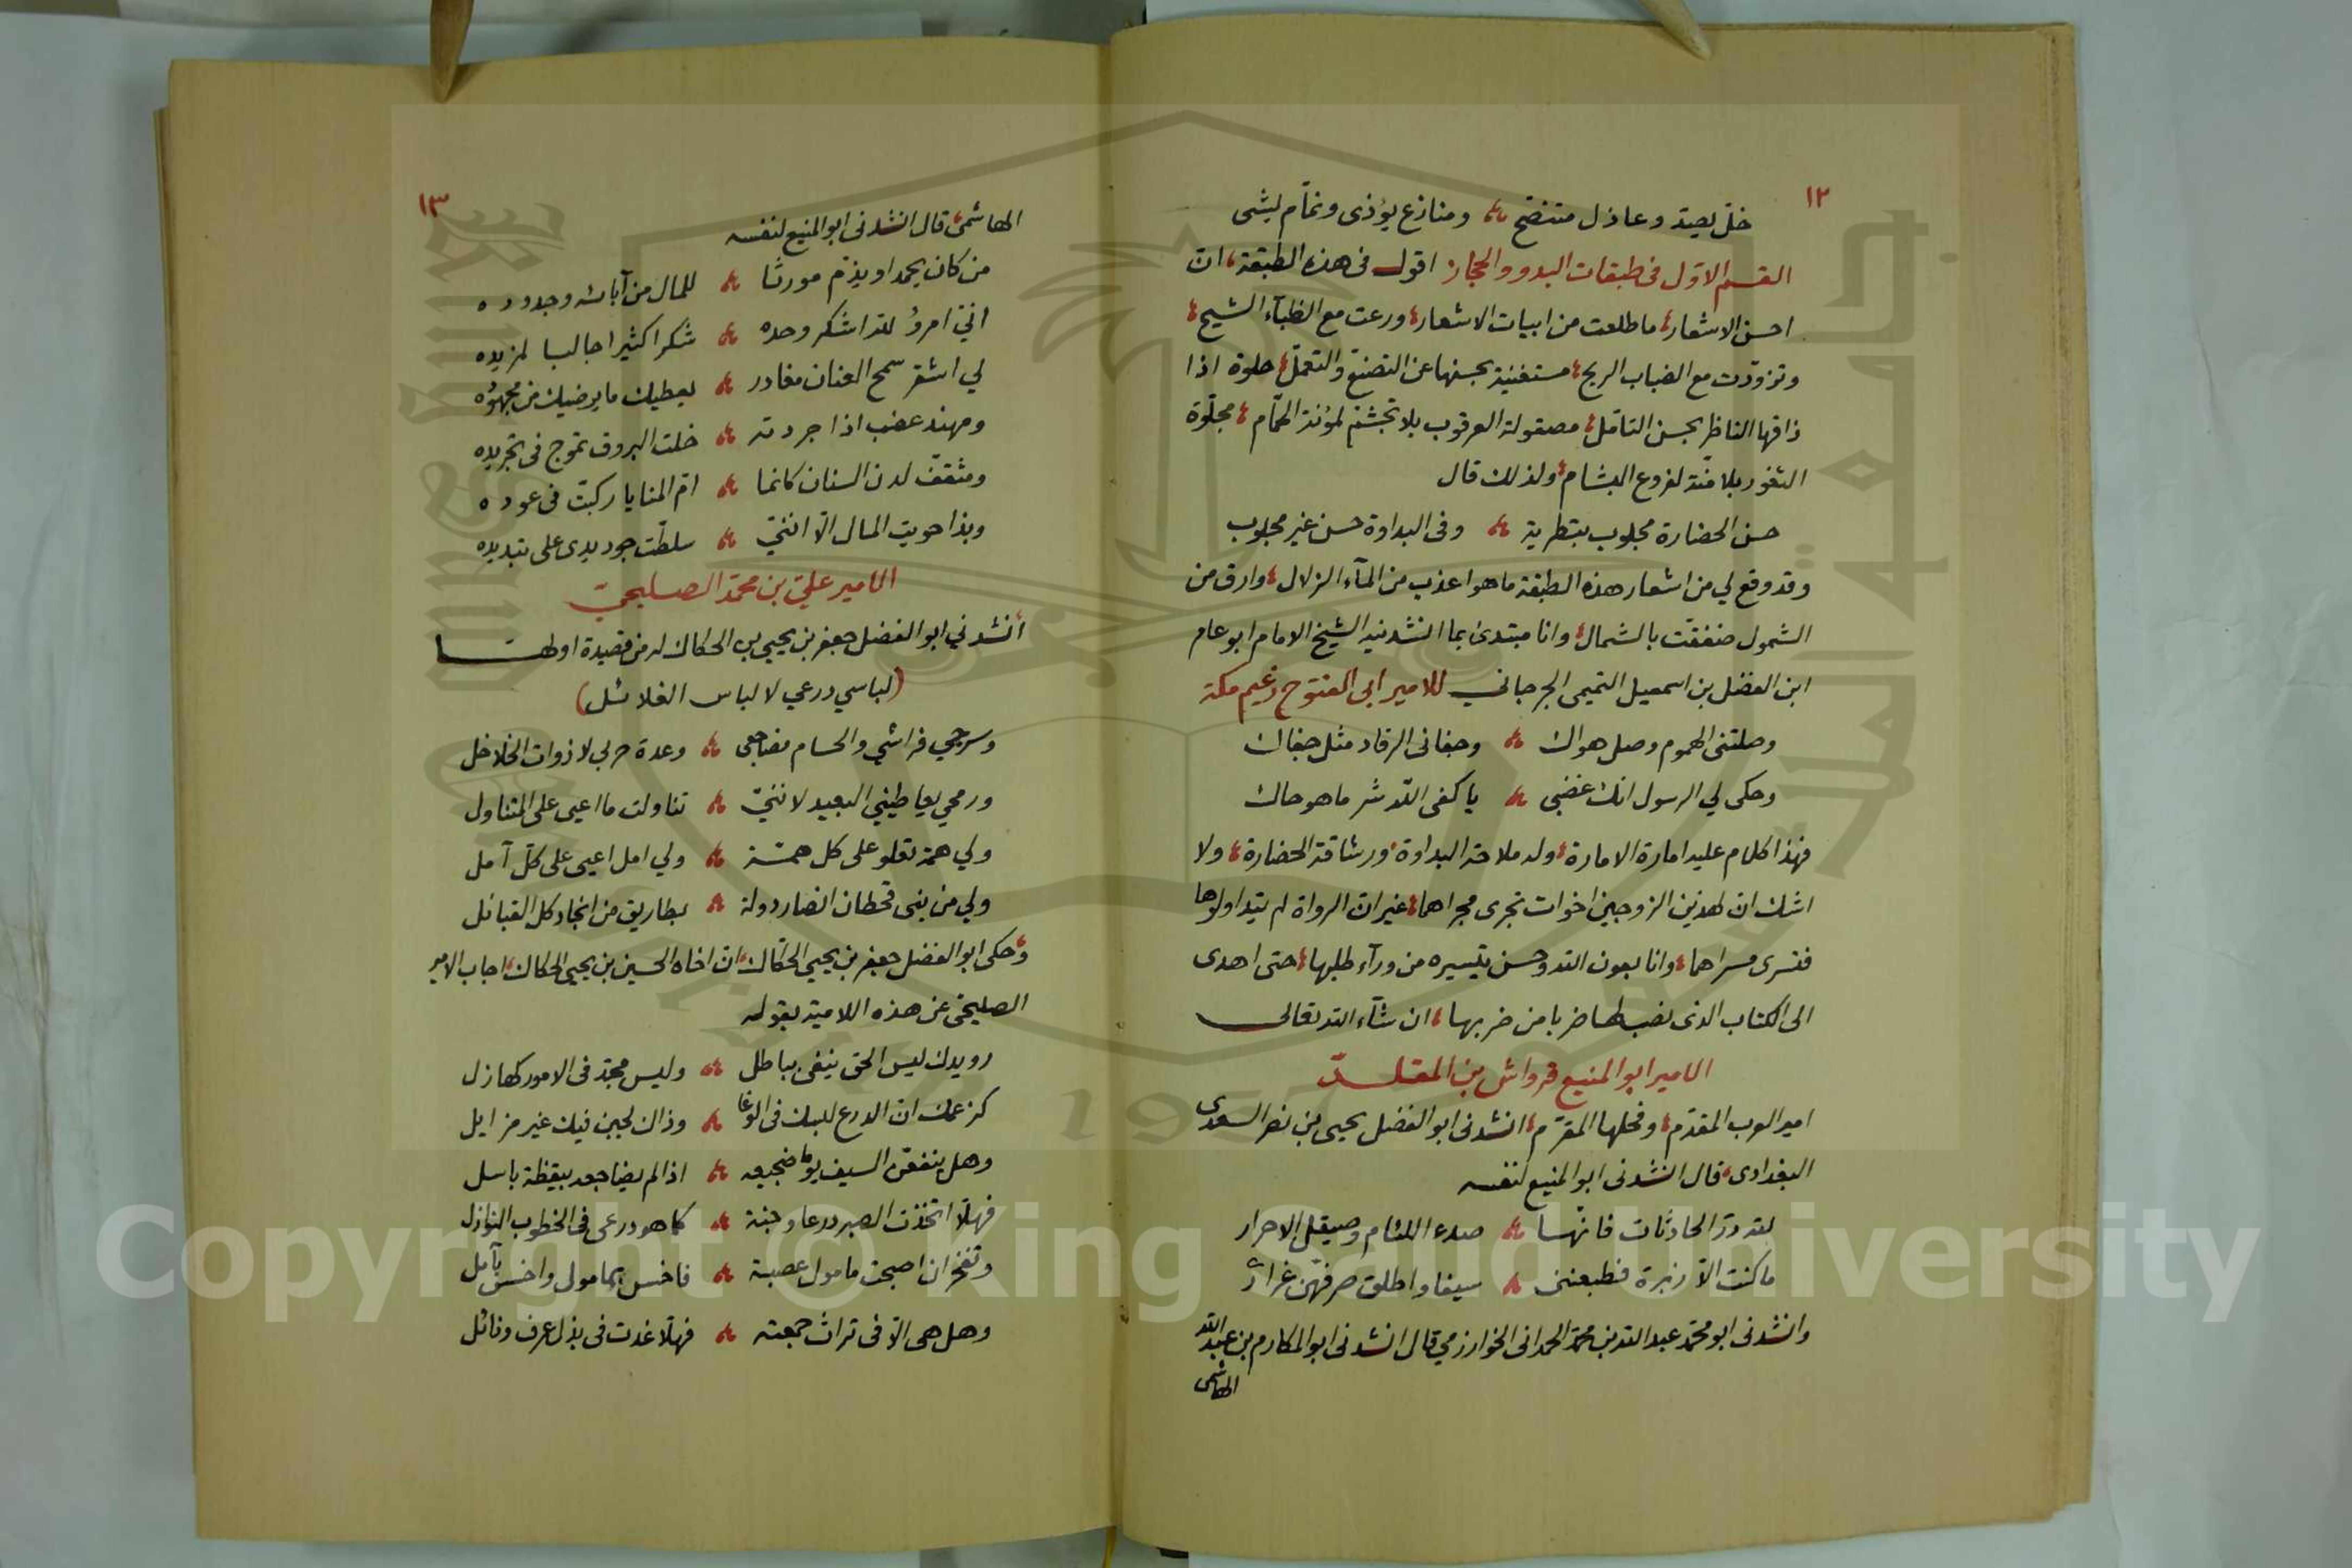 ١٢
خل يصد وعاذل متنصح ومنازع يؤذى ونمام يشى
القسم الاول فى طبقات البدو والحجاز اقول فى هذه الطبقة، ان
احسن الاشعار، ما طلعت من ابيات الاشعار، ورعت مع الظبآء الشيح،
وتزودت مع الضباب الريح، مستغنية بحسنها عن التصنع والتعمل، حلوة اذا
ذاقها الناظر بحسن التأمل، مصقولة العرقوب بلا تجشم لمؤنة الحمام، مجلوة
الثغور بلا منة لفروع البشام، ولذلك قال
حسن الحضارة مجلوب بتطرية وفى البداوة حسن غير مجلوب
وقد وقع لي من اشعار هذه الطبقة ما هو اعذب من المآء الزلال، وارق من
الشمول صفقت بالشمال، وانا مبتدئ بما انشدنيه الشيخ الامام ابو عام
ابن الفضل بن اسمعيل التميمى الجرجاني للامير ابى الفتوح زعيم مكة
وصلتنى الهموم وصل هواك وجفانى الرقاد مثل جفاك
وحكى لي الرسول انك غضبى يا كفى الله شر ما هو حاك
فهذا كلام عليه امارة الامارة، وله ملاحة البداوة، ورشاقة الحضارة، ولا
اشك ان لهذين الزوجين اخوات تجرى مجراهما، غير ان الرواة لم يتداولوها
فتسرى مسراهما، وانا بعون الله وحسن تيسيره من ورآء طلبها، حتى اهدى
الى الكتاب الذى نصب لها ضربا من ضربها، ان شآء الله تعالى
الامير ابو المنيع قرواش بن المقلد
امير العرب المقدم، وفحلها المقرم، انشدنى ابو الفضل يحيى بن نصر السعدى
البغدادى، قال انشدنى ابو المنيع لنفسه
لله در الحادثات فانها صدء اللئام وصيقل الاحرار
ما كنت الا زبرة فطبعننى سيفا واطلق صرفهن غرارى
وانشدنى ابو محمد عبد الله بن محمد الحمدانى الخوارزمي قال انشدنى ابو المكارم بن عبد الله
الهاشمى
١٣
الهاشمى، قال انشدنى ابو المنيع لنفسه
من كان يحمد او يذم مورثا للمال من آبائه وجدوده
انى امرؤ لله اشكر وحده شكرا كثيرا جالبا لمزيده
لي اشقر سمح العنان مغادر يعطيك ما يرضيك من مجهوده
ومهند عضب اذا جردته خلت البروق تموج فى تجريده
ومثقف لدن السنان كانما ام المنايا ركبت فى عوده
وبذا حويت المال الا اننى سلطت جود يدى على تبديده
الامير علي بن محمد الصليحى
أنشدني ابو الفضل جعفر بن يحيى بن الحكاك له من قصيدة اولها
(لباسي درعي لا لباس الغلائل)
وسرجي فراشي والحسام مضاجعى وعدة حربي لا ذوات الخلاخل
ورمحي يعاطيني البعيد لاننى تناولت ما اعيى على المتناول
ولي همة تعلو على كل همة ولي امل اعيى على كل آمل
ولي من بنى قحطان انصار دولة بطاريق من انجاد كل القبائل
وحكى ابو الفضل جعفر بن يحيى الحكاك، ان اخاه الحسين بن يحيى الحكاك، اجاب الامير
الصليحى عن هذه اللامية بقوله
رويدك ليس الحق ينفى بباطل وليس مجد فى الامور كهازل
كزعمك ان الدرع لبسك فى الوغا وذاك لجبن فيك غير مزايل
وهل ينفعن السيف يوما ضجيعه اذا لم يضاجعه بيقظة باسل
فهلا اتخذت الصبر درعا وجنة كما هو درعى فى الخطوب النوازل
وتفخر ان اصبحت مامول عصبة فاخس بمامول واخسس بآمل
وهل هى الا فى تراث جمعته فهلا غدت فى بذل عرف ونائل
Copyright © King Saud University
1957